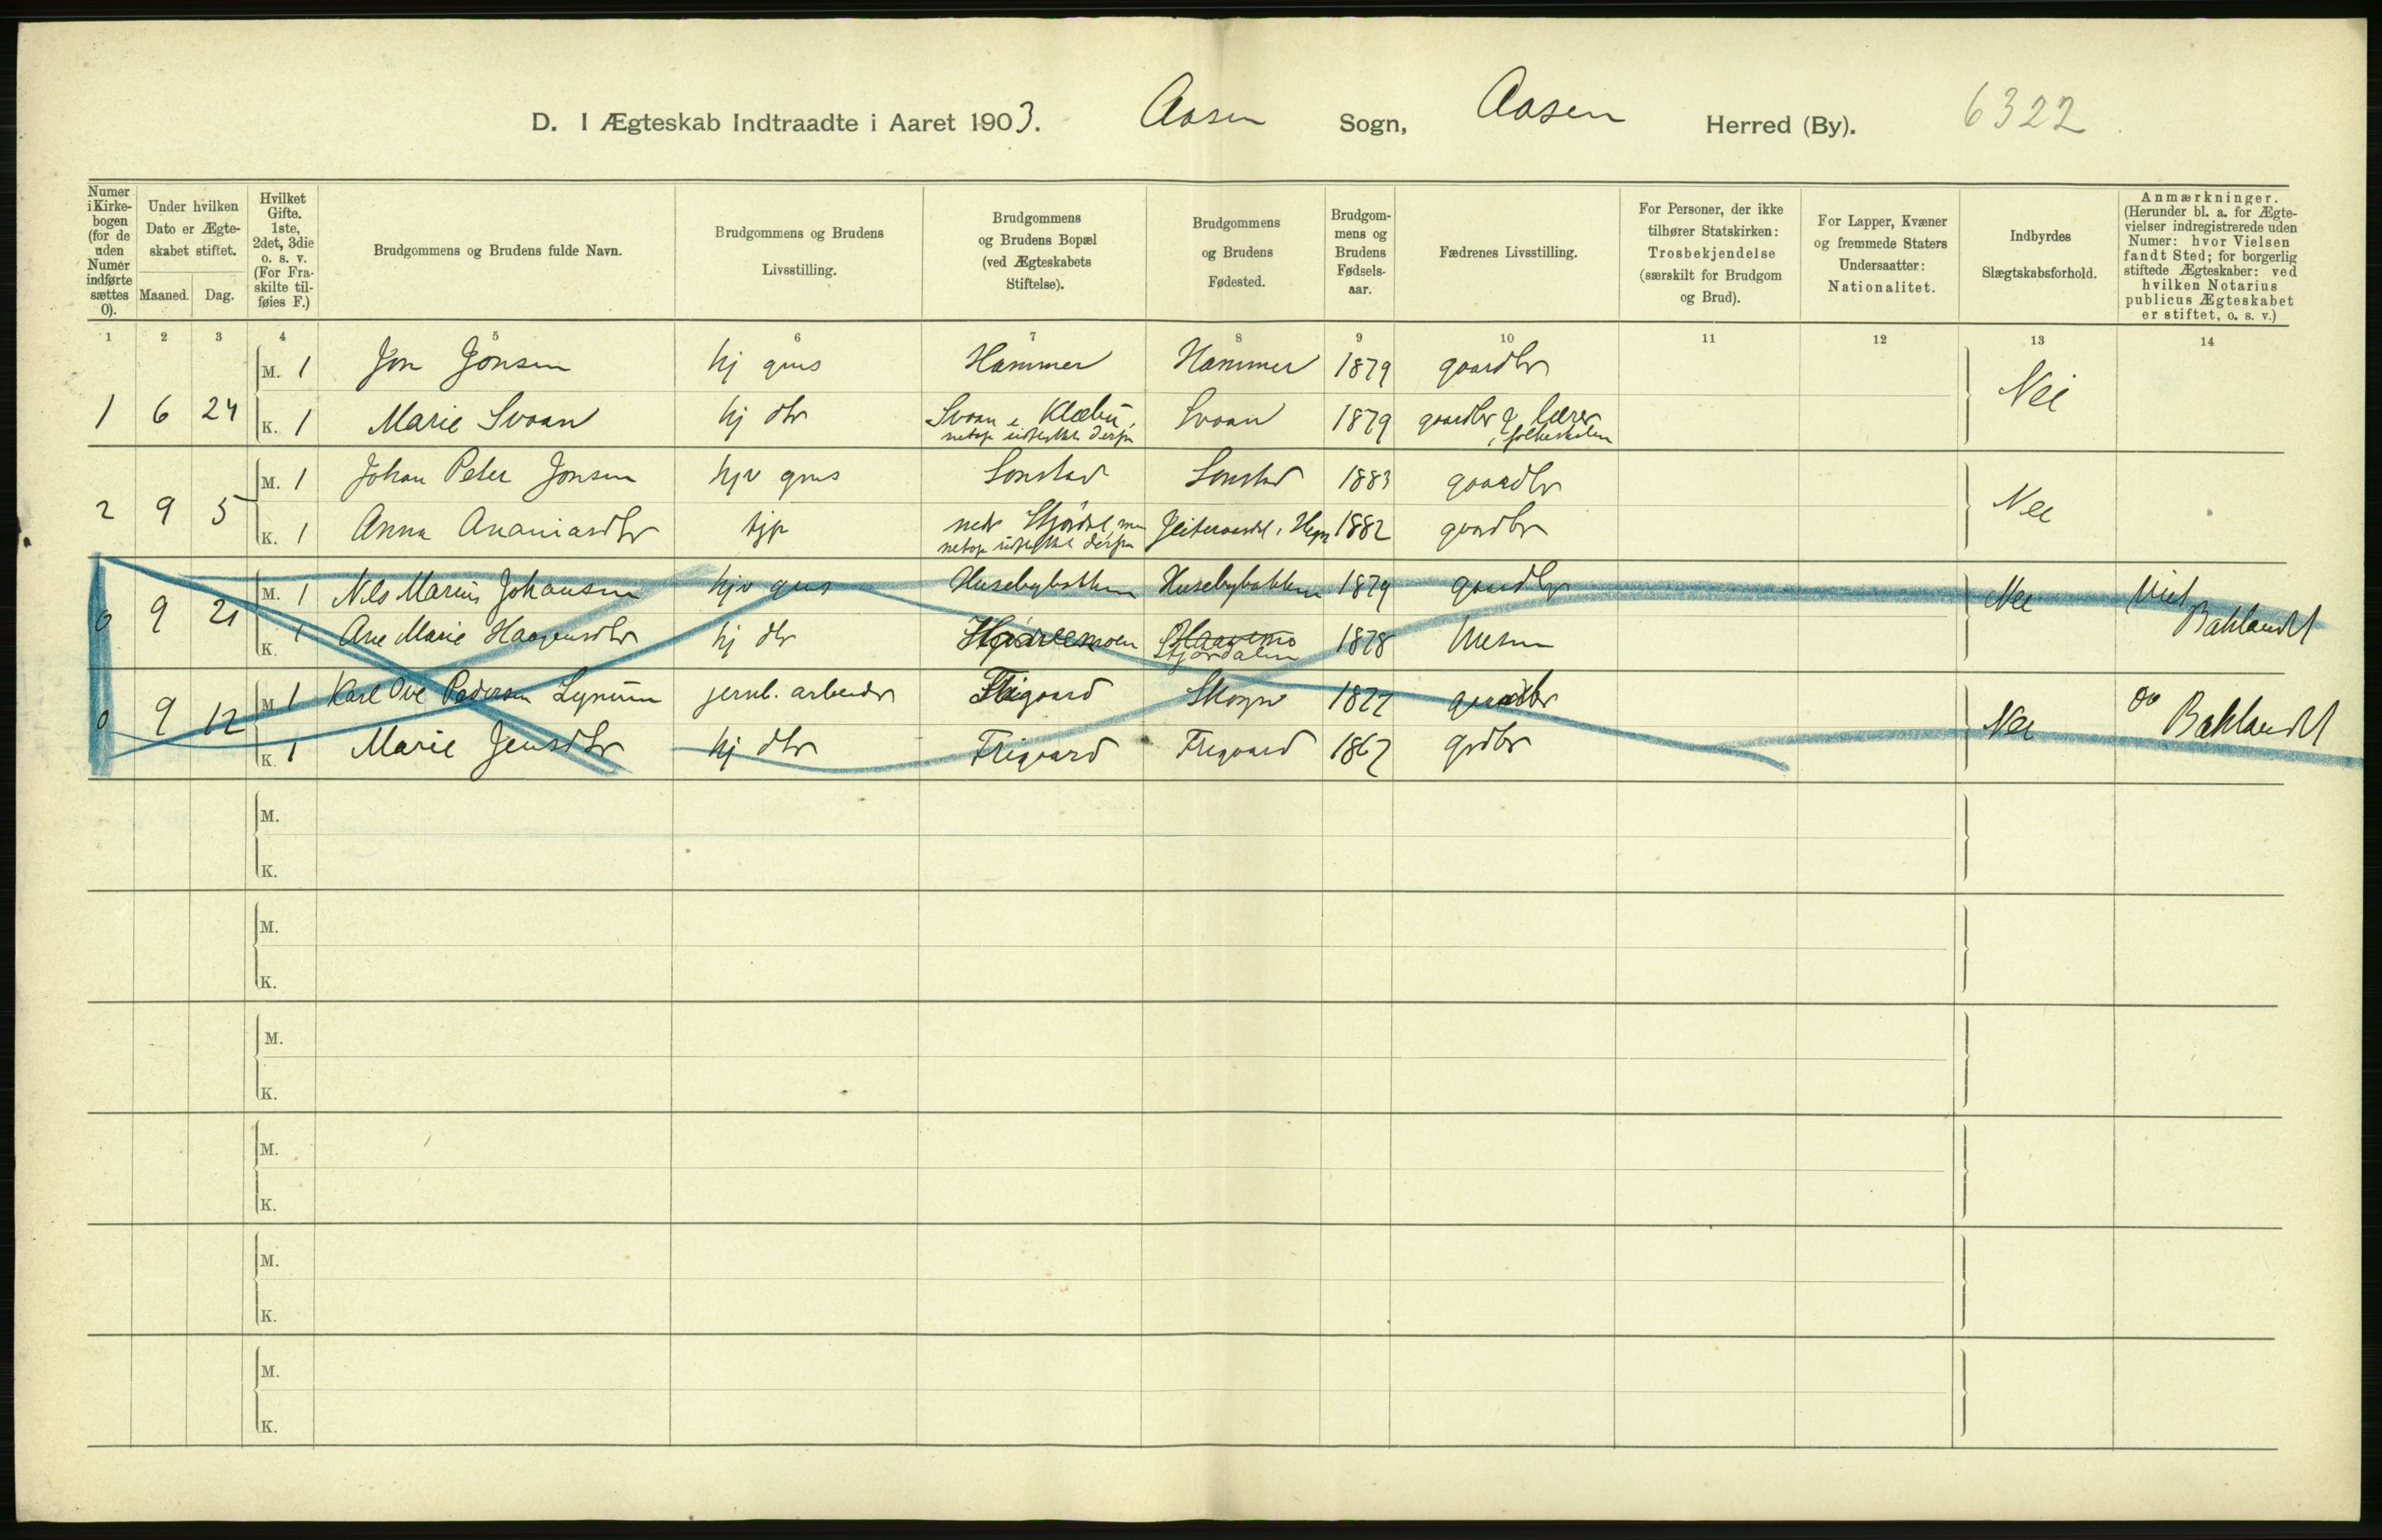 D. I Ægteskab Indtraadte i Aaret 1903. Aasen Sogn, Aasen Herred (By). 6322
Numer i Kirkebogen (for de uden Numer indførte sættes 0).
Under hvilken Dato er Ægteskabet stiftet.
Maaned. Dag.
Hvilket Gifte. 1ste, 2det, 3die o. s. v. (For Fraskilte tilføies F.)
Brudgommens og Brudens fulde Navn.
Brudgommens og Brudens Livsstilling.
Brudgommens og Brudens Bopæl (ved Ægteskabets Stiftelse).
Brudgommens og Brudens Fødested.
Brudgommens og Brudens Fødselsaar.
Fædrenes Livsstilling.
For Personer, der ikke tilhører Statskirken: Trosbekjendelse (særskilt for Brudgom og Brud).
For Lapper, Kvæner og fremmede Staters Undersaatter: Nationalitet.
Indbyrdes Slægtskabsforhold.
Anmærkninger. (Herunder bl. a. for Ægtevielser indregistrerede uden Numer: hvor Vielsen fandt Sted; for borgerlig stiftede Ægteskaber: ved hvilken Notarius publicus Ægteskabet er stiftet, o. s. v.)
1 2 3 4 5 6 7 8 9 10 11 12 13 14
M. 1 Jon Jonsen hj gms Hammer Hammer 1879 gaardbr Nei
1 6 24 K. 1 Marie Svaan hj dtr Svaan i Klæbu, Svaan 1879 gaardbr & lærer
netop udflyttet derfra i folkeskolen
M. 1 Johan Peter Jonsen hjv gms Sonstad Sonstad 1883 gaardbr Nei
2 9 5 K. 1 Anna Ananiasdtr tjp nedr Stjørdal, men 1882 gaardbr
netop udflyttet derfra
0 9 21 M. 1 Nils Marius Johansen hjv gms Husebybakken Husebybakken 1879 gaardbr Nei Viet Baklandet
K. 1 Ane Marie Haagensdtr hj dtr 1878
Stjørdalen
0 9 12 M. 1 Karl Ove Pedersen Lynum jernb. arbeider Skogn 1877 gaardbr Nei do Baklandet
K. 1 Marie Jensdtr hj dtr Frigaard Frigaard 1867 grdbr
M.
K.
M.
K.
M.
K.
M.
K.
M.
K.
M.
K.